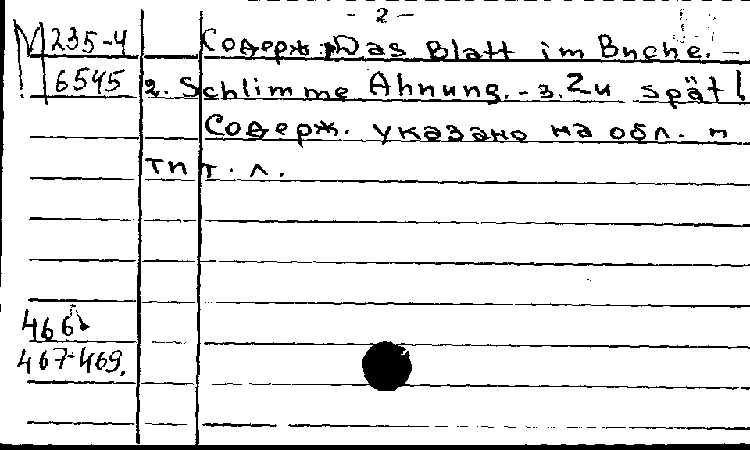 - 2 -
М 235-4
6545
Содерж: Das Blatt im Buche. -
2. Schlimme Ahnung. - 3. Zu spät!
Содерж. указано на обл. п
тп т. л.
466
467-469.